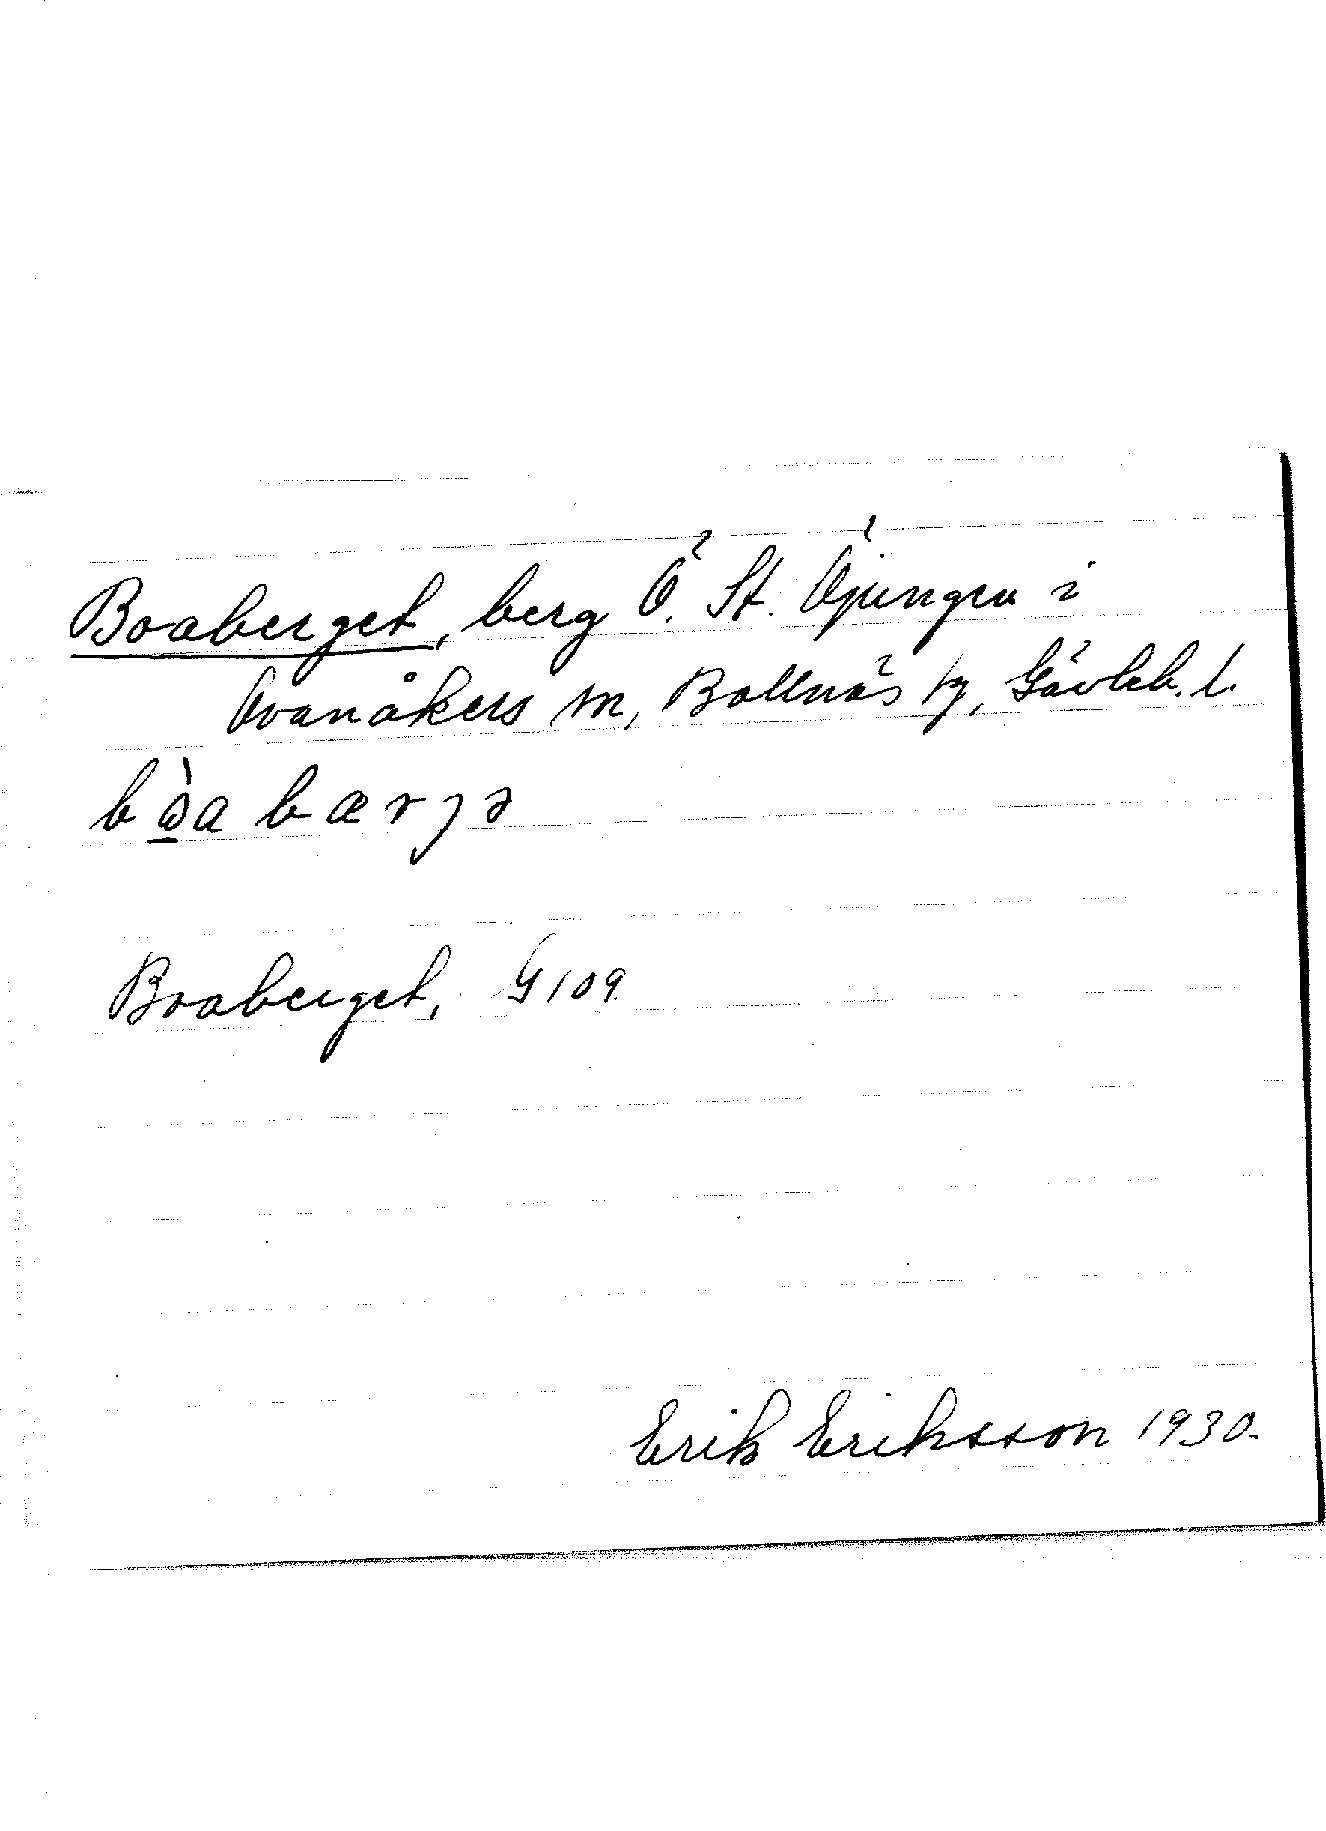 Boaberget, berg Ö. St. Öjungen i
Ovanåkers sn, Bollnäs tg, Gävleb. l.
bòabærjə
Boaberget, G109
Erik Eriksson 1930.